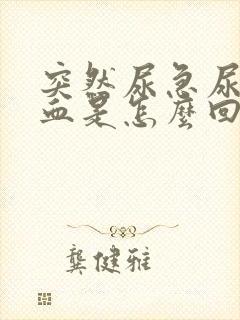 突然尿急尿
血是怎麼回
龔健雅